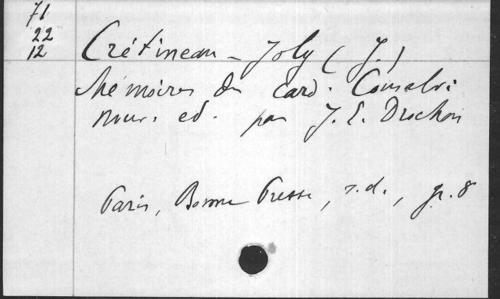 71
22
12
Crétineau-Joly (J.)
Mémoires du card. Consalvi
nouv. ed. par J. E. Drochon
Paris, Bonne Presse, s.d., gr. 8